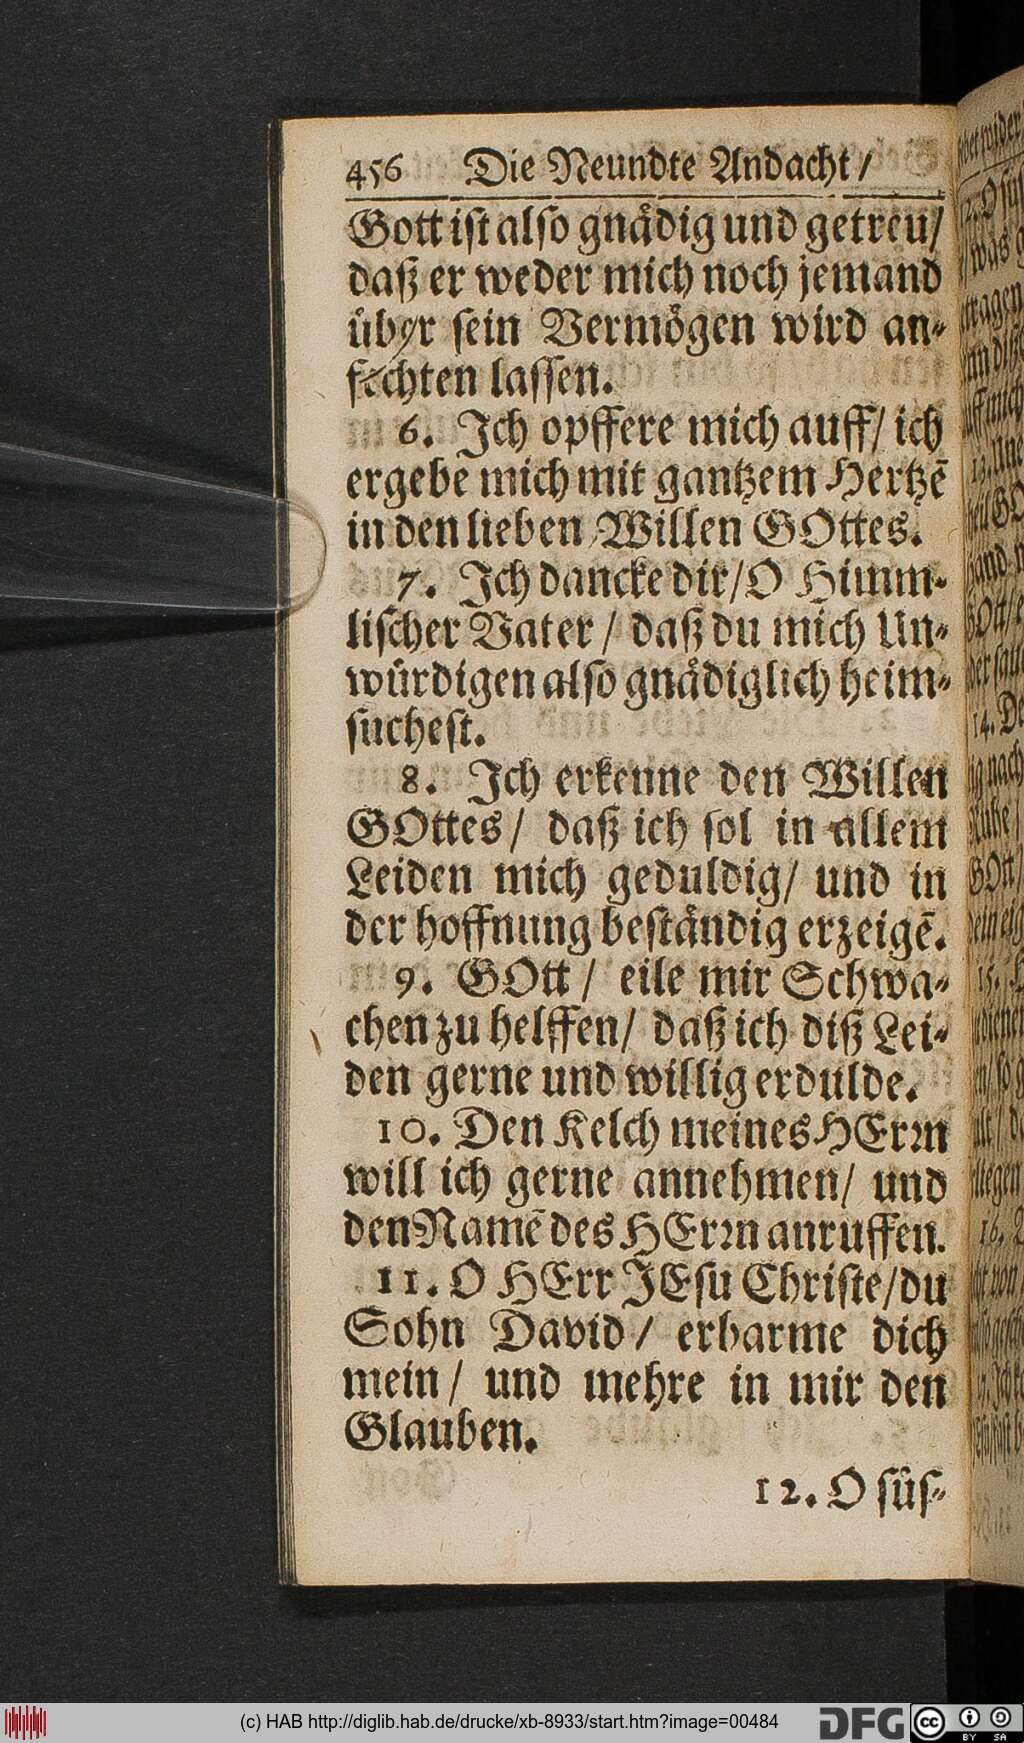 456 Die Neundte Andacht /
Gott ist also gnådig und getreu /
daß er weder mich noch jemand
über sein Vermögen wird an-
fechten lassen.
6. Ich opffere mich auff / ich
ergebe mich mit gantzem Hertzē
in den lieben Willen GOttes.
7. Ich dancke dir / O Himm-
lischer Vater / daß du mich Un-
würdigen also gnådiglich heim-
suchest.
8. Ich erkenne den Willen
GOttes / daß ich sol in allem
Leiden mich geduldig / und in
der hoffnung beståndig erzeigē.
9. GOtt / eile mir Schwa-
chen zu helffen / daß ich diß Lei-
den gerne und willig erdulde.
10. Den Kelch meines HErrn
will ich gerne annehmen / und
den Namē des HErrn anruffen.
11. O HErr JEsu Christe / du
Sohn David / erbarme dich
mein / und mehre in mir den
Glauben.
12. O süs-
(c) HAB http://diglib.hab.de/drucke/xb-8933/start.htm?image=00484
DFG
cc BY SA